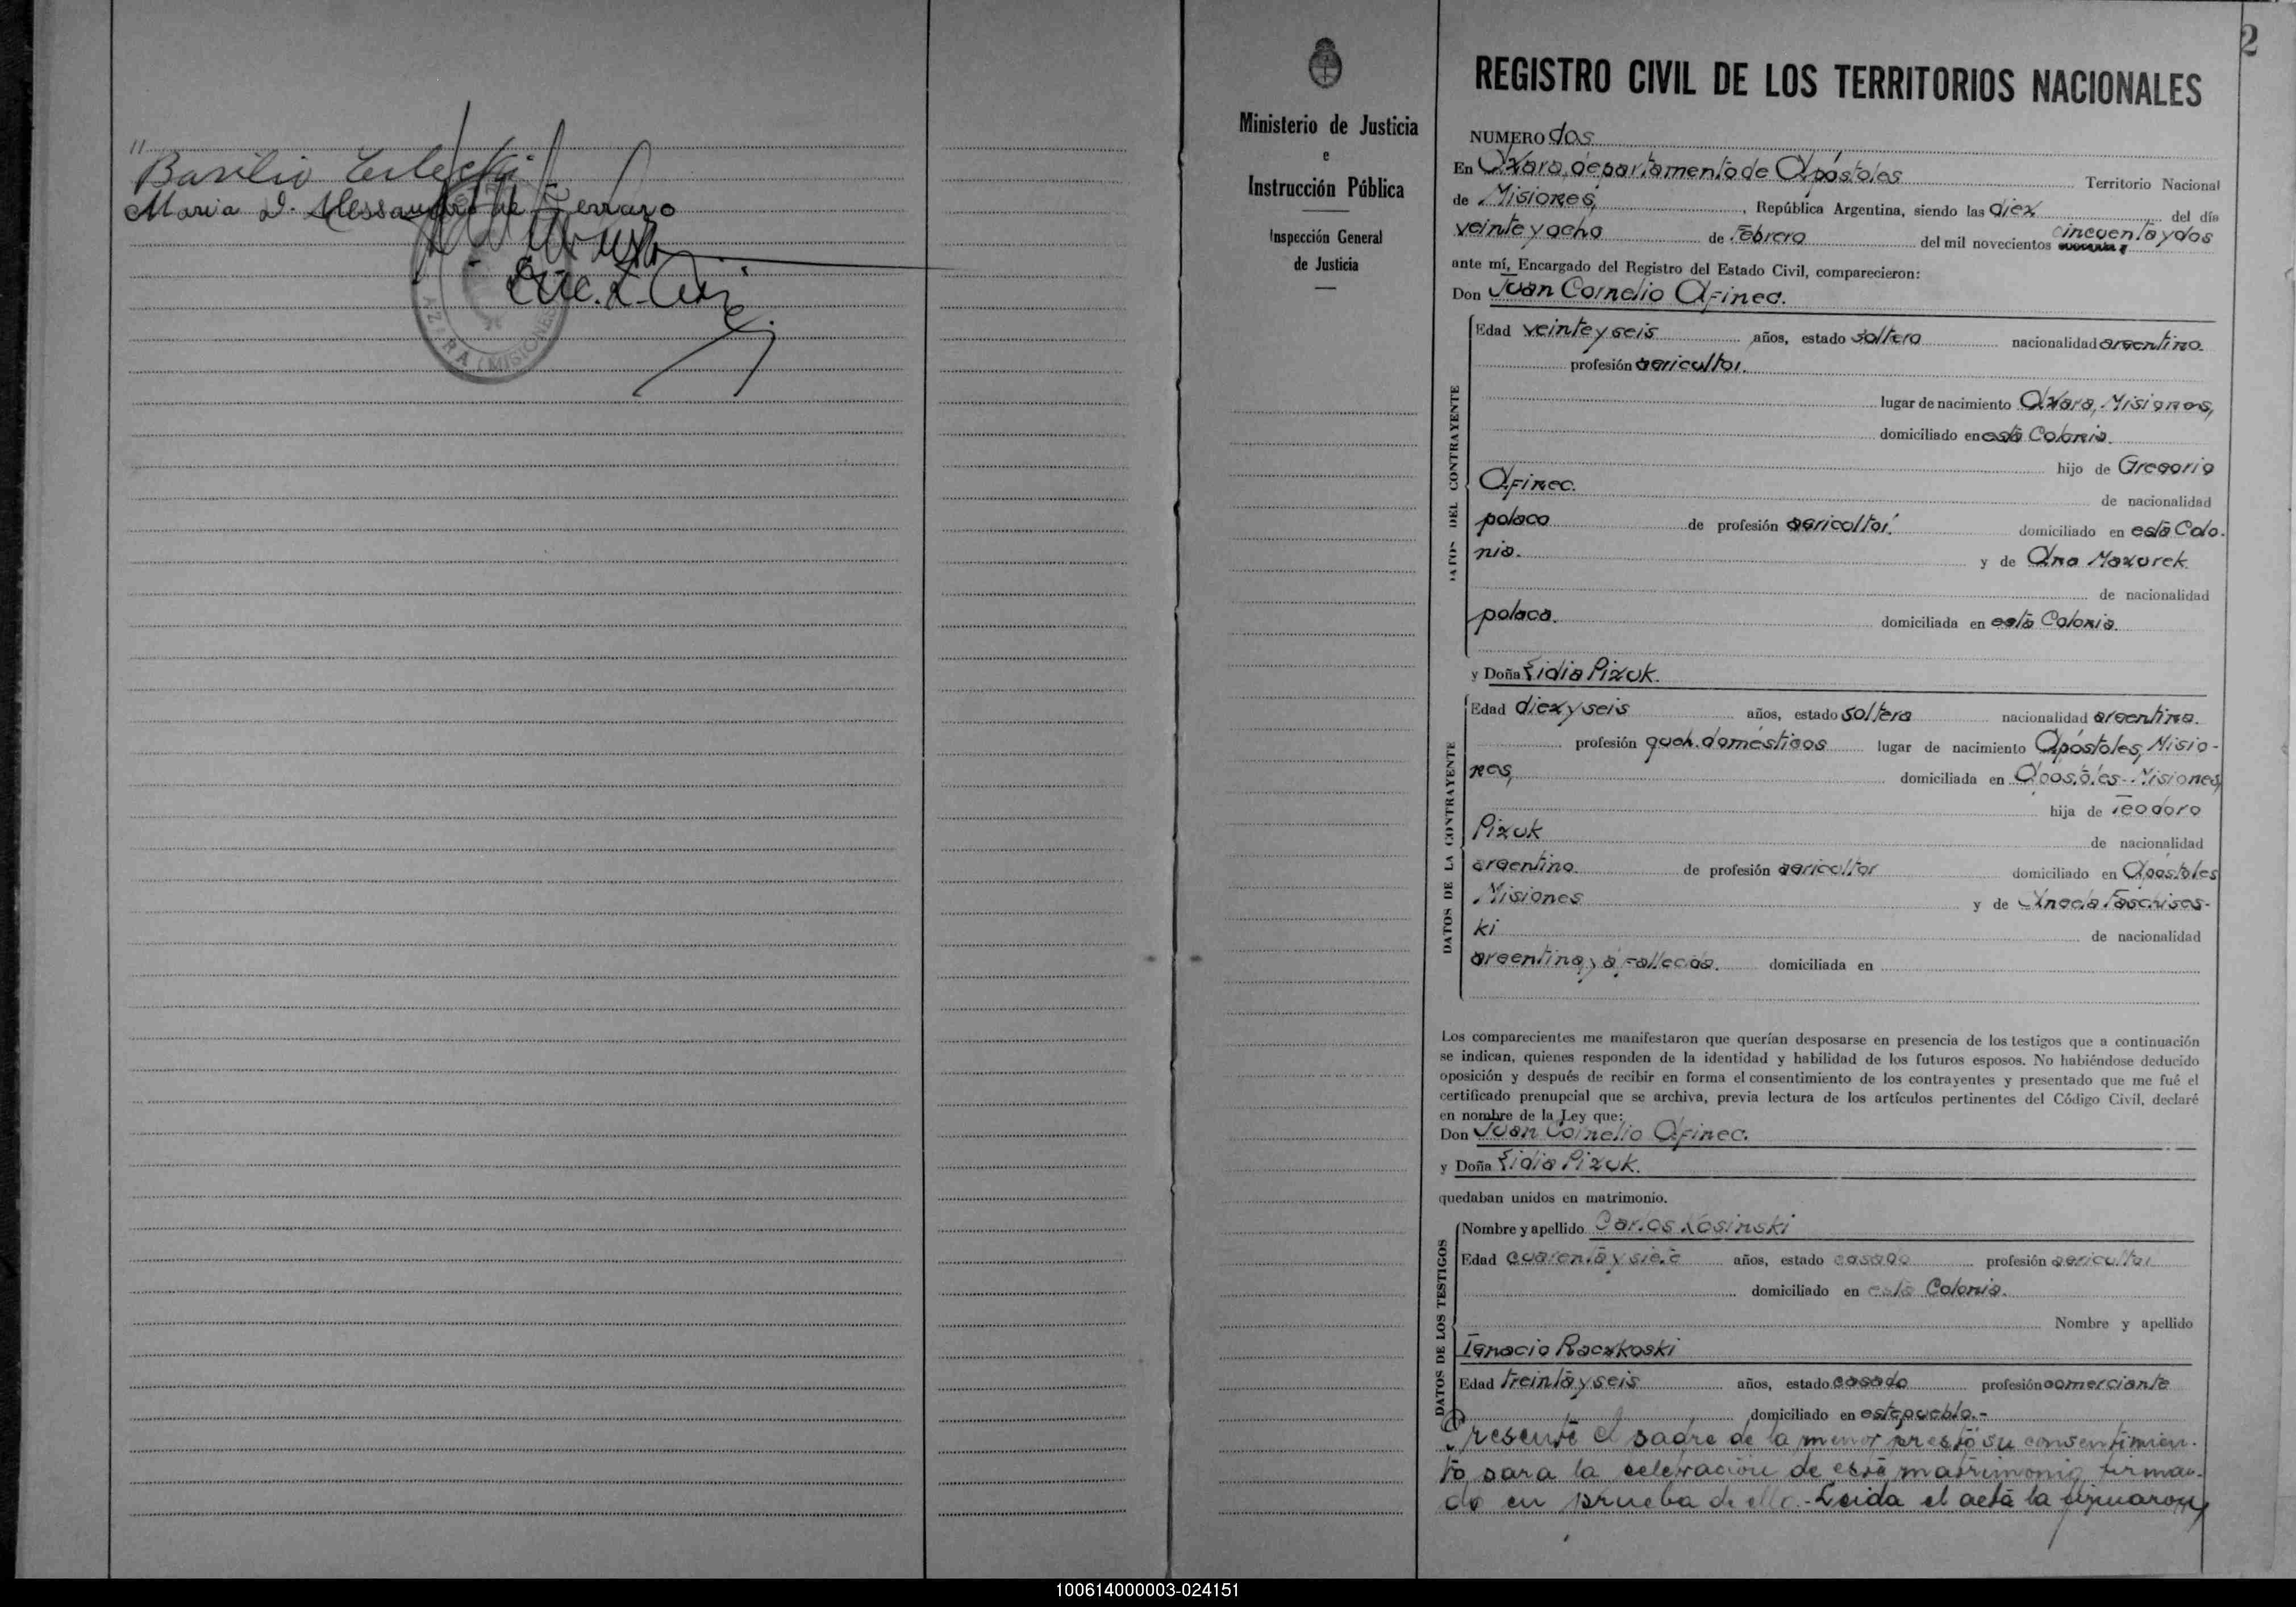 "
Basilio
Maria D. Alessandro de Ferraro
AZARA (MISIONES
2
Ministerio de Justicia
e
Instrucción Pública
Inspección General
de Justicia
REGISTRO CIVIL DE LOS TERRITORIOS NACIONALES
NUMERO dos
En Azara, departamento de Apóstoles Territorio Nacional
de Misiones, , República Argentina, siendo las diez del día
veinte y ocho de Febrero del mil novecientos cincuenta y dos
ante mí, Encargado del Registro del Estado Civil, comparecieron:
Don Juan Cornelio Afinec.
DATOS DEL CONTRAYENTE
Edad veinte y seis años, estado soltero nacionalidad argentino.
profesión agricultor.
lugar de nacimiento Azara, Misiones,
domiciliado en esta Colonia.
hijo de Gregorio
Afinec. de nacionalidad
polaco de profesión agricultor. domiciliado en esta Colo-
nia. y de Ana Mazurek
de nacionalidad
polaca. domiciliada en esta Colonia.
y Doña Lidia Pizuk.
DATOS DE LA CONTRAYENTE
Edad diez y seis años, estado soltera nacionalidad argentina.
profesión queh. domésticos lugar de nacimiento Apóstoles, Misio-
nes, domiciliada en Apóstoles - Misiones,
hija de Teodoro
Pizuk de nacionalidad
argentino. de profesión agricultor domiciliado en Apostoles
Misiones y de
ki de nacionalidad
argentina, ya fallecida. domiciliada en
Los comparecientes me manifestaron que querían desposarse en presencia de los testigos que a continuación
se indican, quienes responden de la identidad y habilidad de los futuros esposos. No habiéndose deducido
oposición y después de recibir en forma el consentimiento de los contrayentes y presentado que me fué el
certificado prenupcial que se archiva, previa lectura de los artículos pertinentes del Código Civil, declaré
en nombre de la Ley que:
Don Juan Cornelio Afinec.
y Doña Lidia Pizuk.
quedaban unidos en matrimonio.
DATOS DE LOS TESTIGOS
Nombre y apellido Carlos Kosinski
Edad cuarenta y siete años, estado casado profesión agricultor
domiciliado en esta Colonia.
Nombre y apellido
Ignacio Raczkoski
Edad treinta y seis años, estado casado profesión comerciante
domiciliado en este pueblo.-
Presente el padre de la menor prestó su consentimien-
to para la celebración de este matrimonio firman-
do en prueba de ello.- Leida el acta la firmaron
100614000003-024151